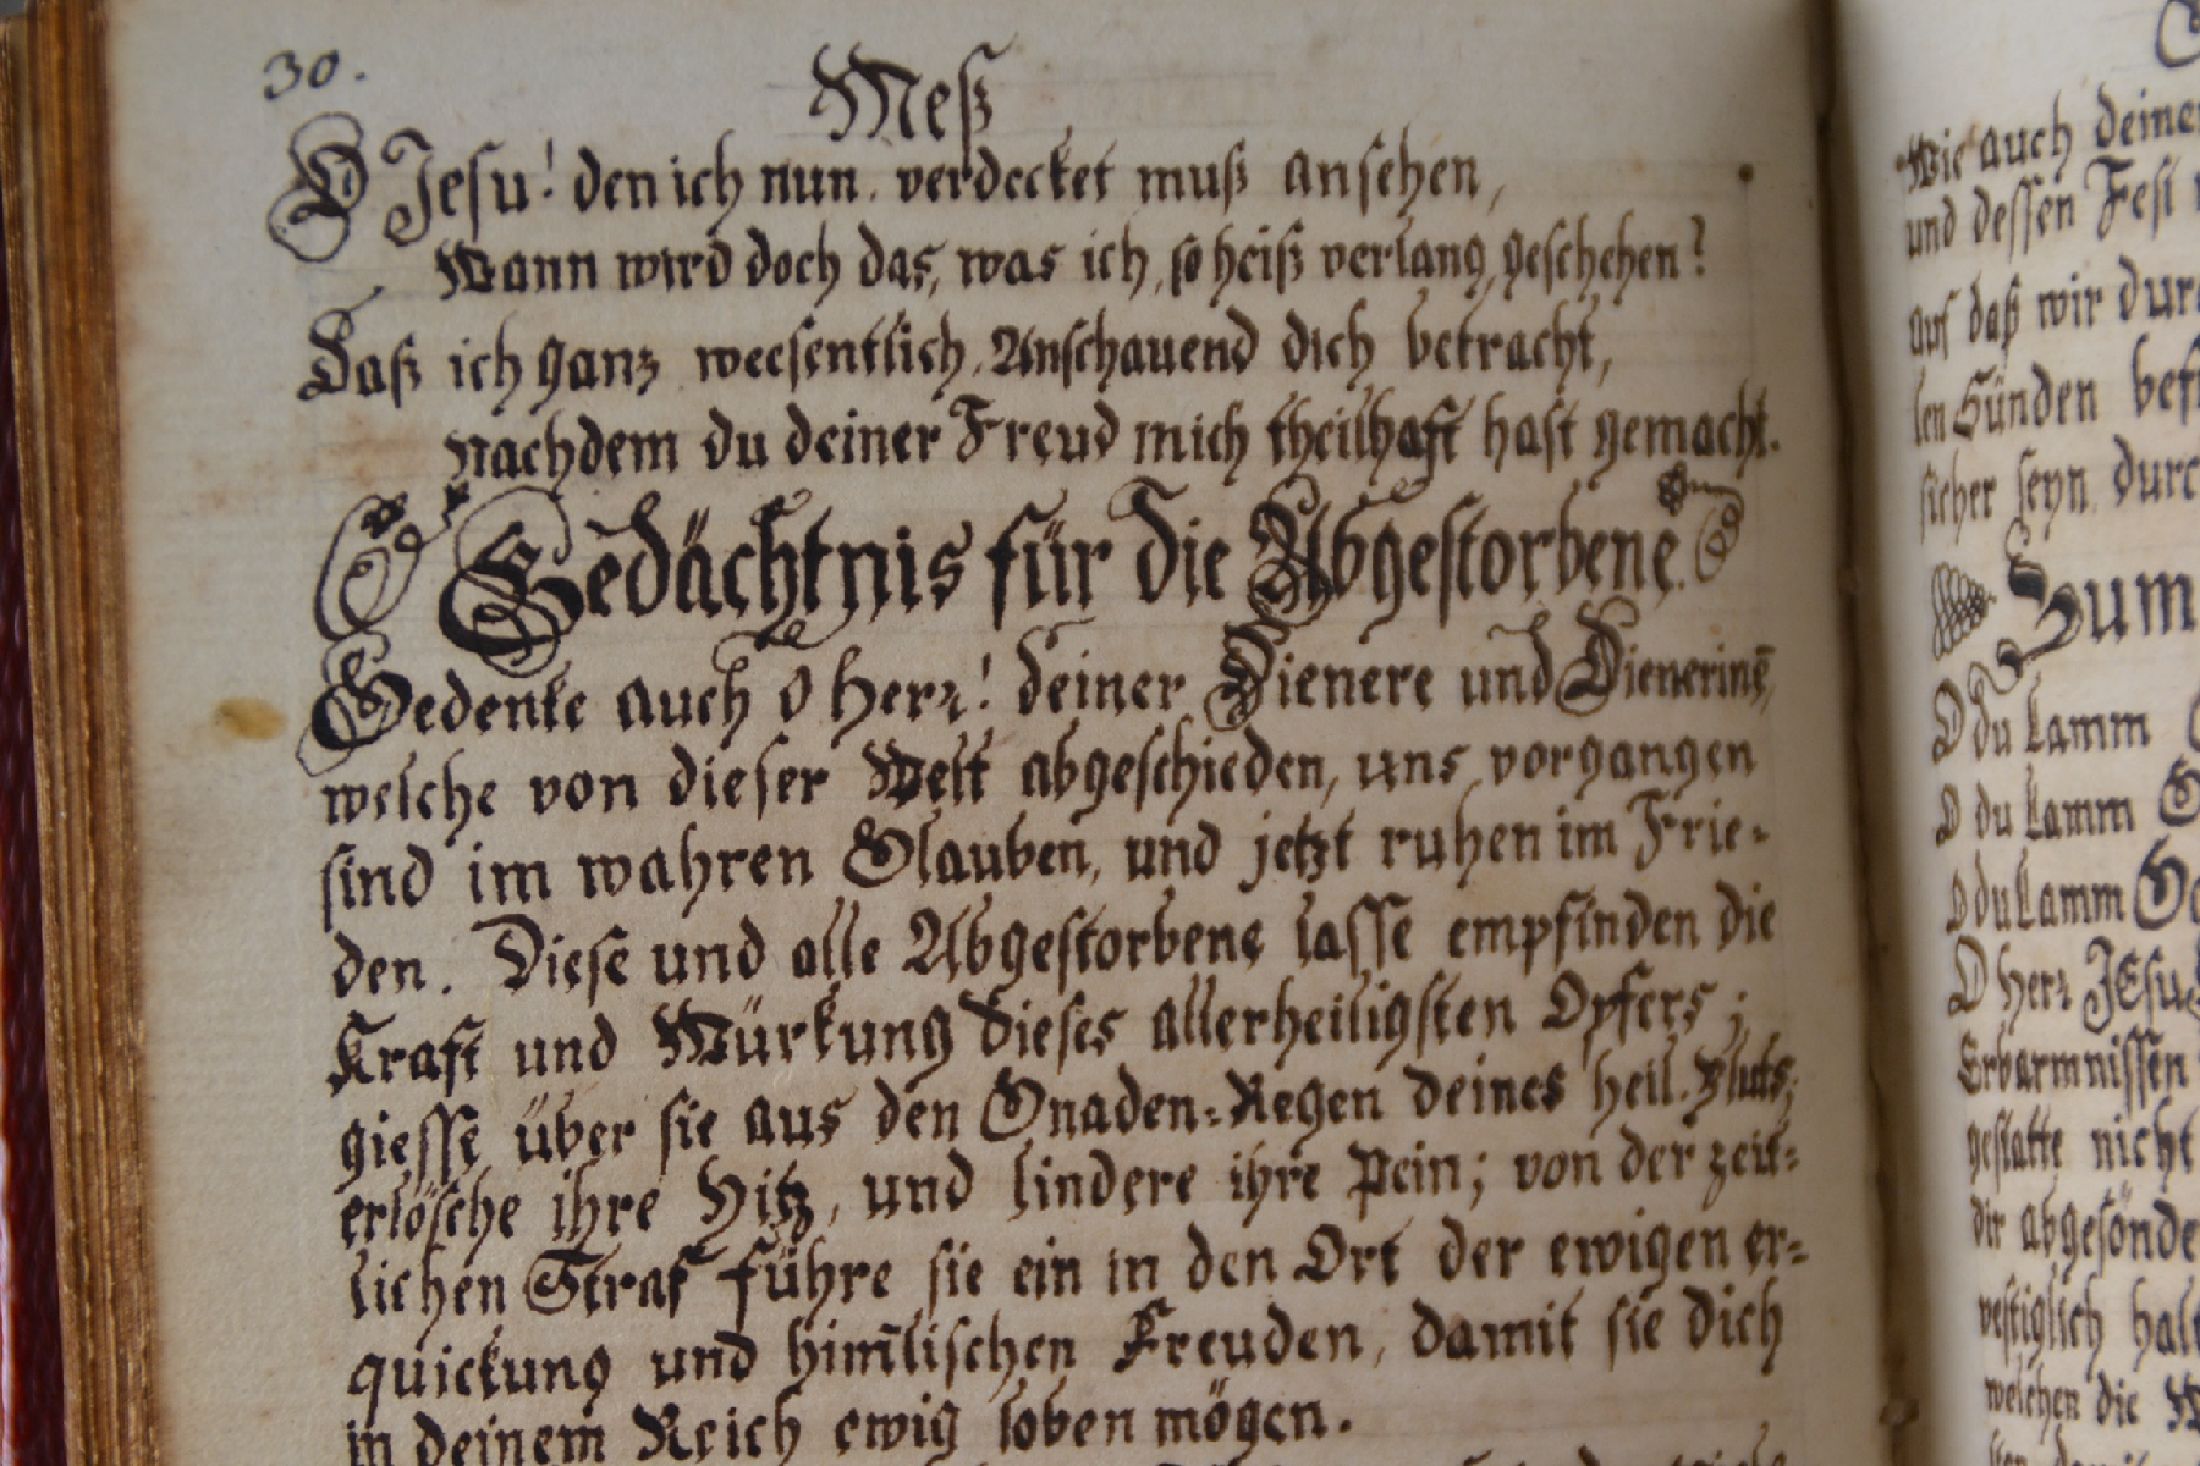 30.
Meß
O Jesu! den ich nun verdecket muß ansehen,
Wann wird doch das, was ich, so heiß verlang, geschehen?
Daß ich ganz weesentlich, Anschauend dich betracht,
Nachdem du deiner Freud mich theilhaft hast gemacht.
Gedächtnis für die Abgestorbene.
Gedenke auch O Herr! deiner Dienere und Dienerinē,
welche von dieser Welt abgeschieden, uns vorgangen
sind im wahren Glauben, und jetzt ruhen im Frie-
den. Diese und alle Abgestorbene lasse empfinden die
Kraft und Würkung dieses allerheiligsten Opfers;
giesse über sie aus den Gnaden-Regen deines heil. Bluts;
erlösche ihre Hitz, und lindere ihre Pein; von der zeit-
lichen Straf führe sie ein in den Ort der ewigen er-
quickung und him̄lischen Freuden, damit sie dich
in deinem Reich ewig loben mögen.
Wie auch deiner
und dessen Fest
auf daß wir durc
len Sünden bef
sicher seyn, durc
Zum
O du Lamm
O du Lamm G
O du Lamm Go
O Herr JEsu
Erbarmnissen
gestatte nicht
dir abgesönde
vestiglich halt
welchen die W